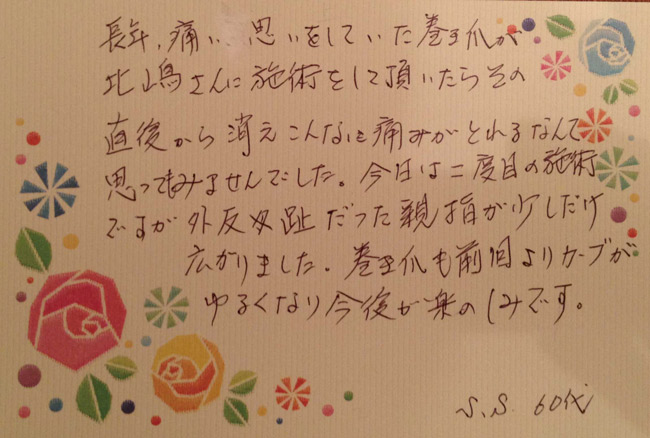 長年、痛い、思いをしていた巻き爪が
北嶋さんに施術をして頂いたらその
直後から消えこんなに痛みがとれるなんて
思ってもみませんでした。今日は二度目の施術
ですが外反母趾だった親指が少しだけ
広がりました。巻き爪も前回よりカーブが
ゆるくなり今後が楽のしみです。
S.S. 60代